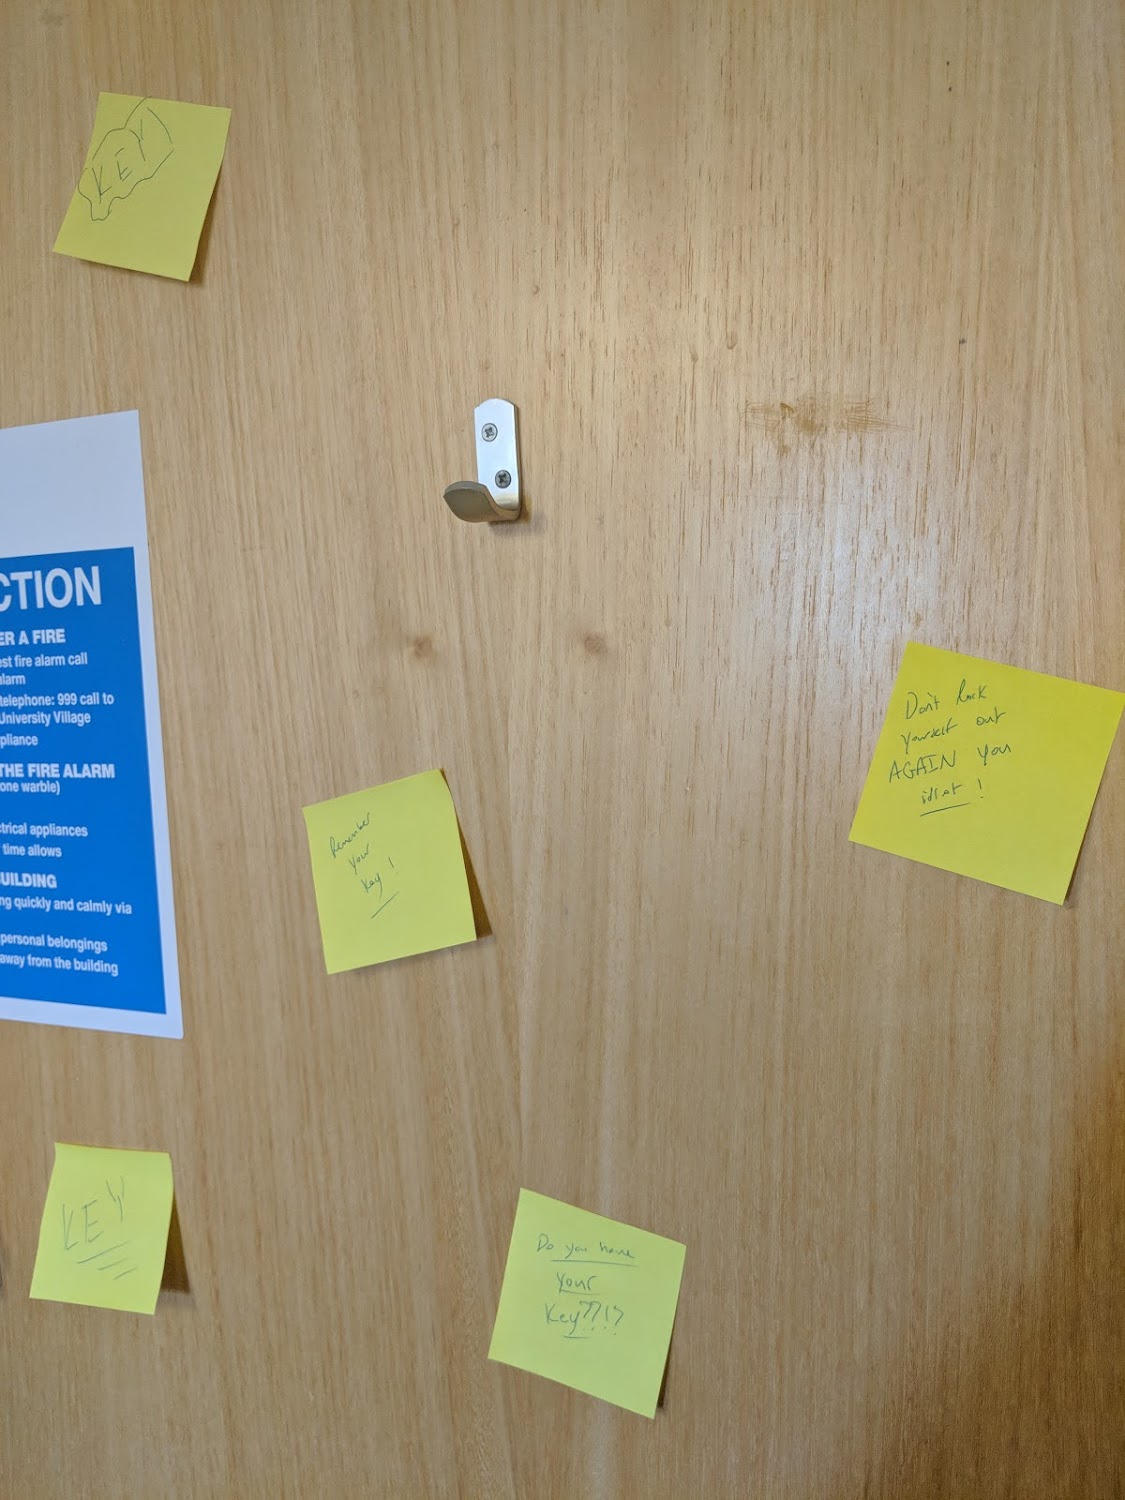 KEY
CTION
ER A FIRE
est fire alarm call
alarm
telephone: 999 call to
University Village
pliance
THE FIRE ALARM
one warble)
ctrical appliances
time allows
BUILDING
ng quickly and calmly via
personal belongings
away from the building
Don't lock
yourself out
AGAIN you
idiot!
Remember
your
key!
KEY
Do you have
your
key??!?